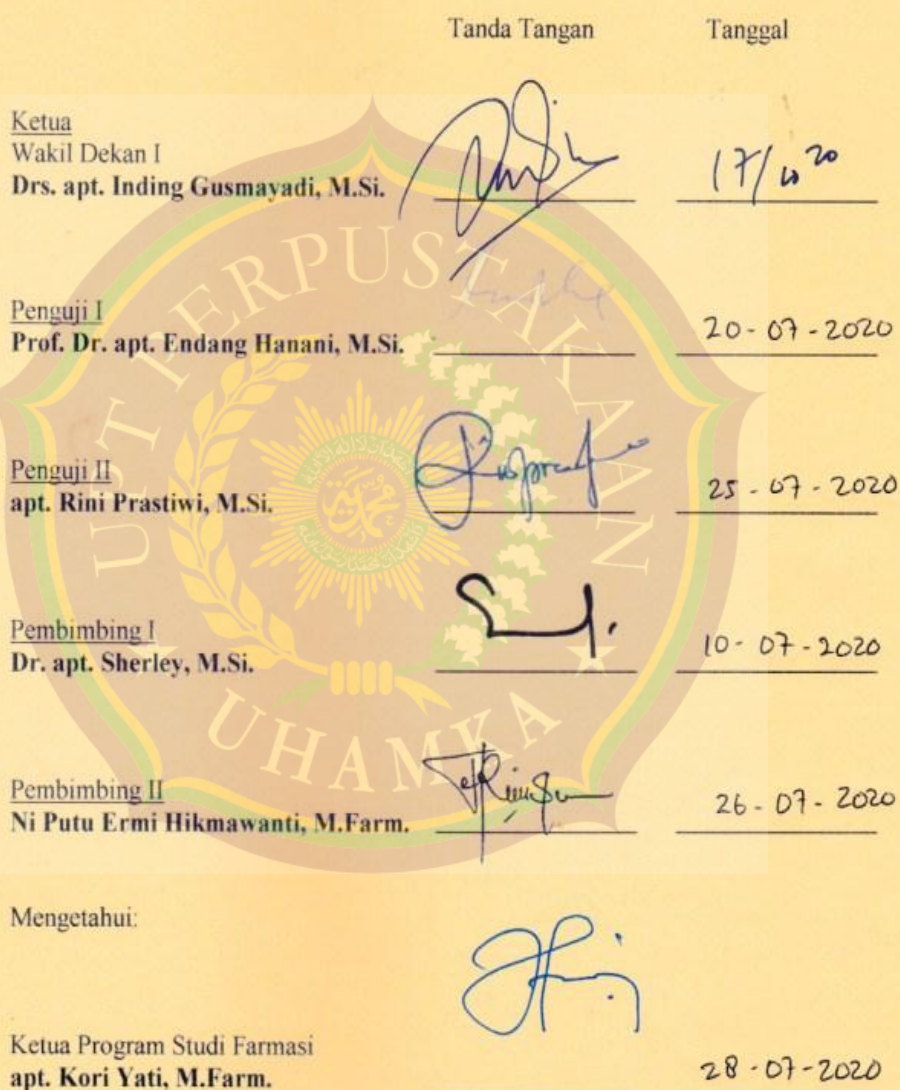 Tanda Tangan Tanggal
Ketua
Wakil Dekan I
Drs. apt. Inding Gusmayadi, M.Si. 17/10 20
Penguji I
Prof. Dr. apt. Endang Hanani, M.Si. 20-07-2020
Penguji II
apt. Rini Prastiwi, M.Si. 25-07-2020
Pembimbing I
Dr. apt. Sherley, M.Si. 10-07-2020
Pembimbing II
Ni Putu Ermi Hikmawanti, M.Farm. 26-07-2020
Mengetahui:
Ketua Program Studi Farmasi
apt. Kori Yati, M.Farm. 28-07-2020
UPT PERPUSTAKAAN
UHAMKA